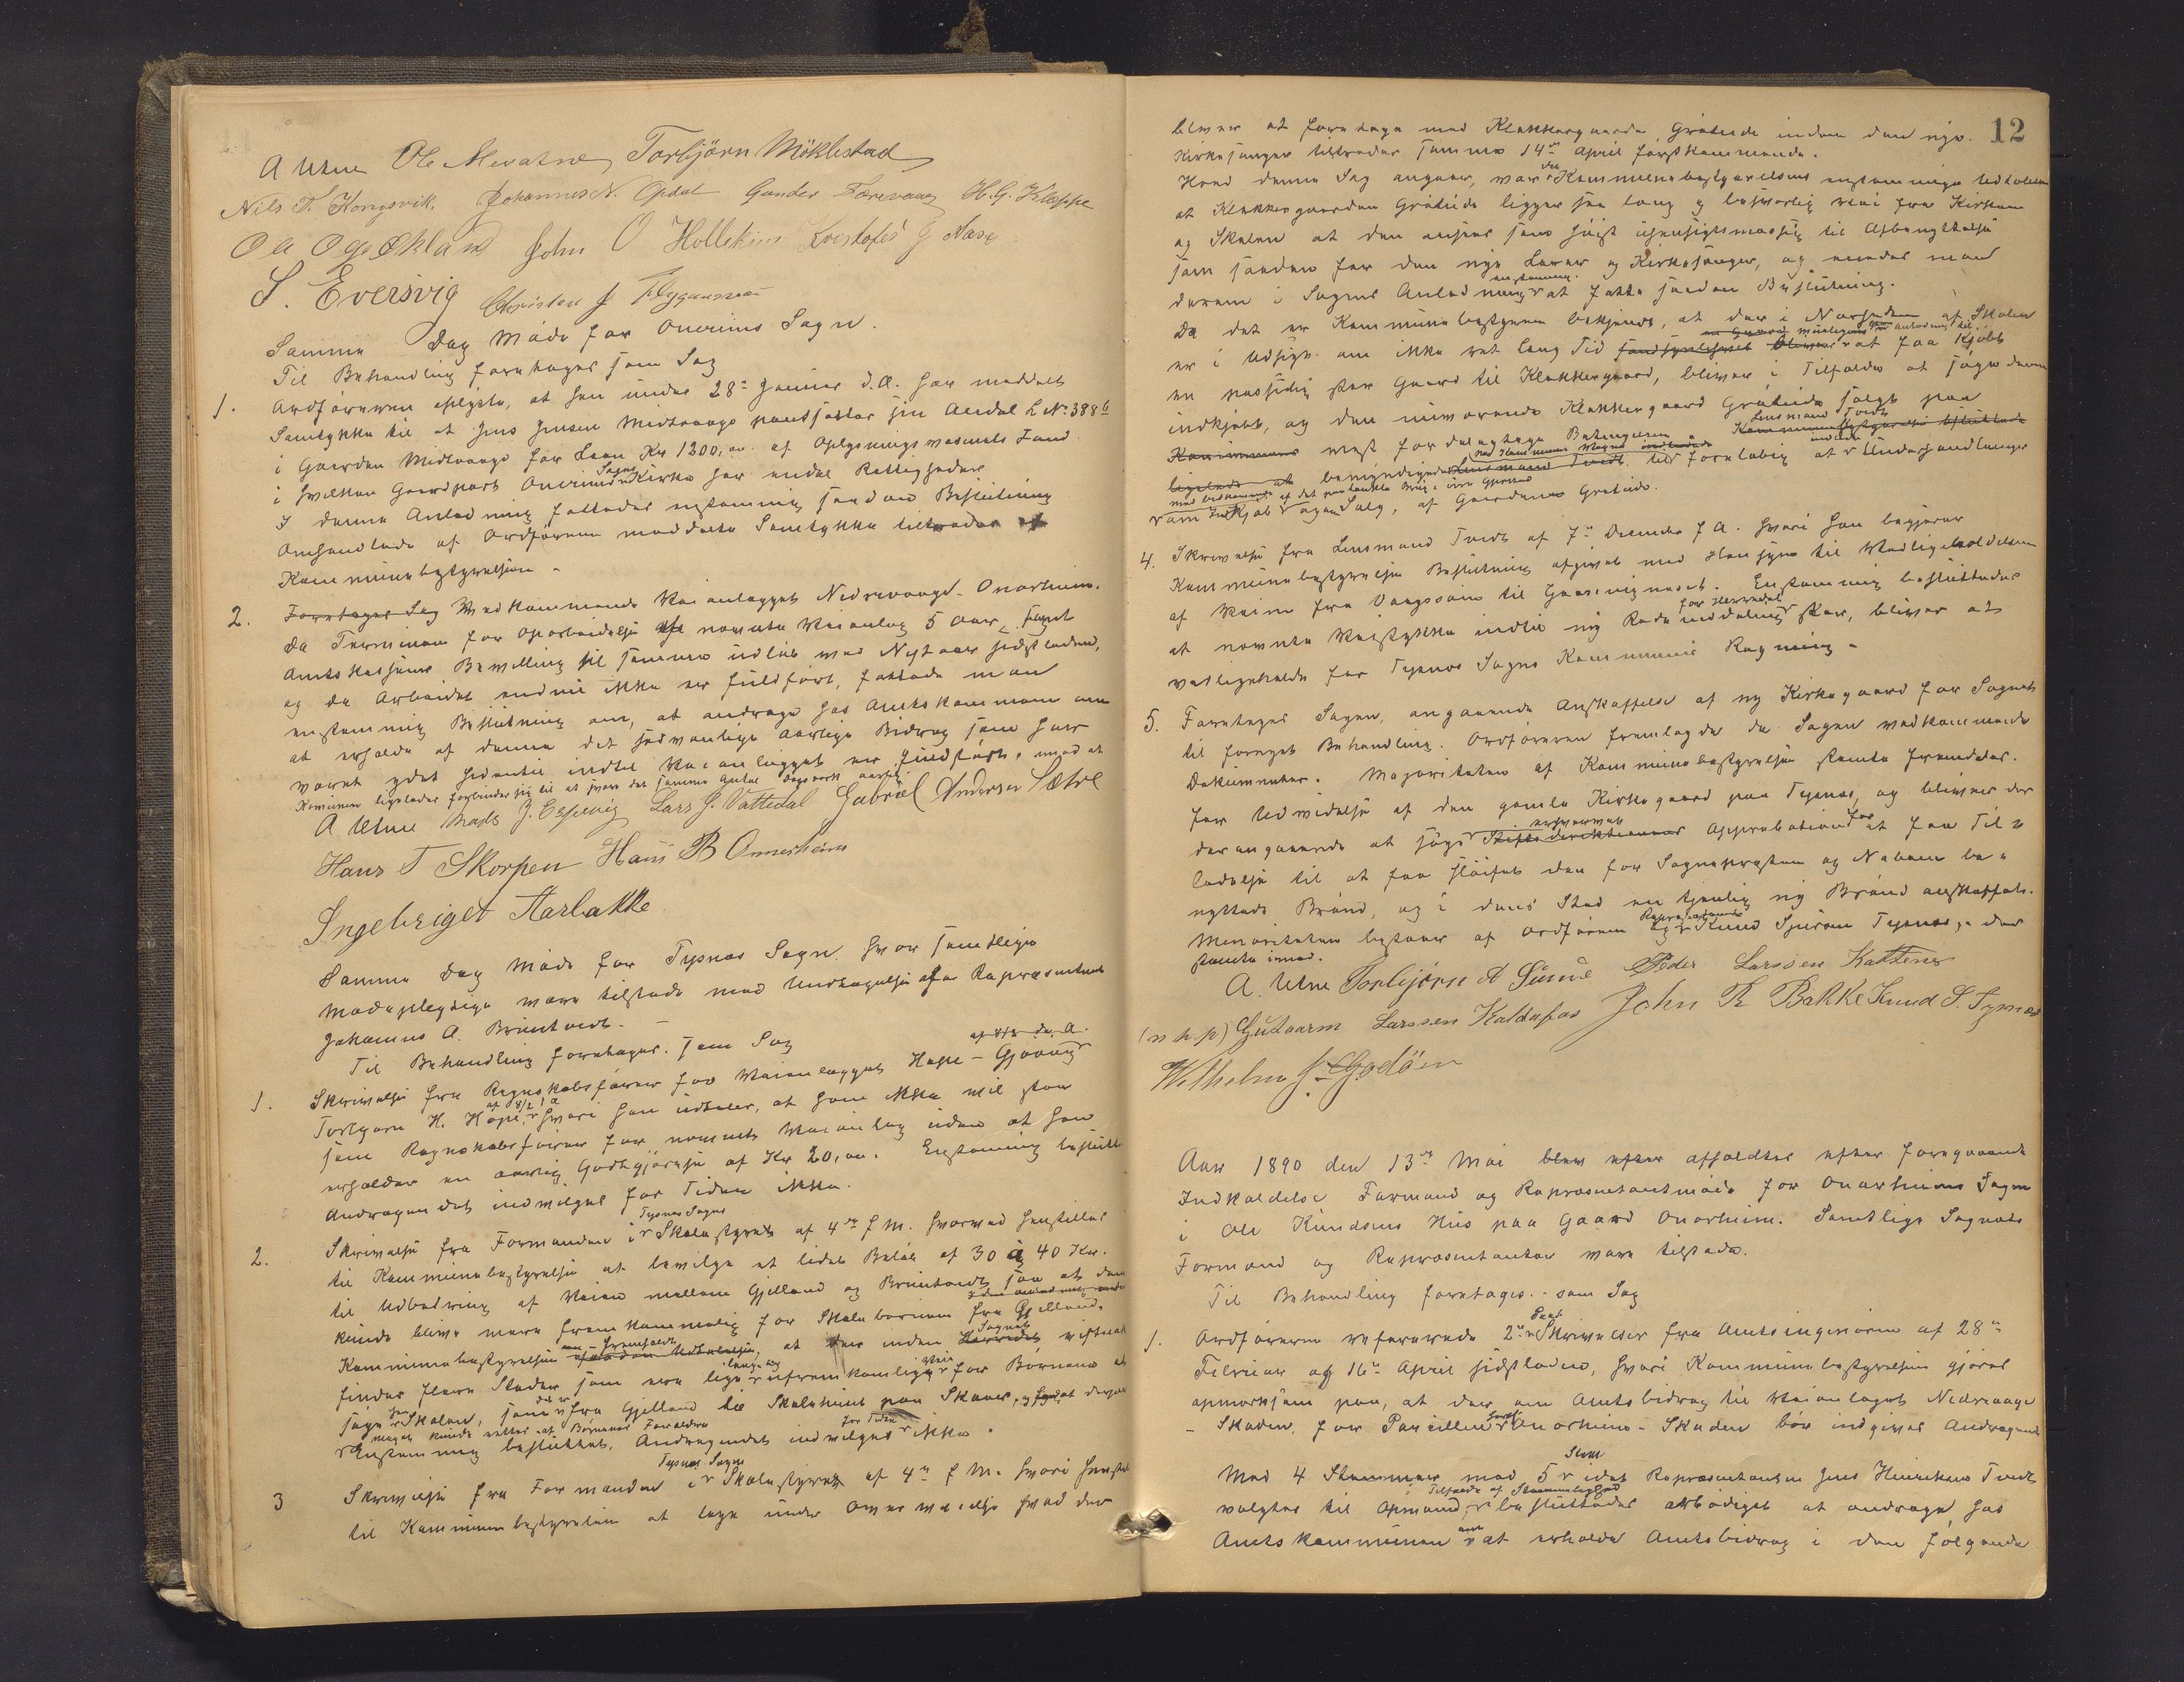 A Utne Ole Mevatne Torbjörn Möklestad
Nils T. Kongsvik. Johannes N. Opdal Gunder Færevaag H. G. Kleppe
Ole Ogs Økland John O Hollekim Kristofer J Aase
S. Eversvig Christen J Flygansvær
Samme Dag Møde for Onerims Sogn.
Til Behandling foretoges som Sag
1. Ordføreren oplyste, at han under 28de Januar d. A. har meddelt
Samtykke til at Jens Jensen Midtvaage pantsætter sin Andel L. No 388b
i Gaarden Midtvaage for Laan Kr 1200,00 af Oplysningsvæsenets Fond
i hvilken Gaardpart Onerims Sogns Kirke har endel Rettigheder
I denne Anledning fattedes enstemmig saadan Beslutning
Omhandlede af Ordføreren meddelte Samtykke tiltrædes af
Kommunebestyrelsen -
2. Foretoges Sag Vedkommende Veianlægget Nedrevaage - Onarheim.
Da Terminen for Oparbeidelse af nævnte Veianlæg 5 Aar, samt
Amtskassens Bevilling til samme udløb med Nytaar sidstleden,
og da Arbeidet endnu ikke er fuldført, fattede man
enstemmig Beslutning om, at andrage hos Amtskommunen om
at erholde af denne det sædvanlige aarlige Bidrag som har
været ydet hidentil indtil Veianlægget er fuldført, mod at
Kommunen ligeledes forbinder sig til at svare det samme Antal Dagsverk aarlig
A Utne Mads J. Espevig Lars J. Vattedal Gabriel Andersen Sætre
Hans T Skorpen Hans B Onnerheim
Ingebriget Aarbakke
Samme Dag Møde for Tysnes Sogn, hvor samtlige
Mødepligtige vare tilstede med Undtagelse af Repræsentant
Johannes A. Bruntvedt. -
Til Behandling foretoges. som Sag
1. Skrivelse fra Regnskabsfører for Veianlægget Hope - Gjøvaag af 4/2 d. A.
Torbjørn H. Hope, af 4/2 d. A. hvori han udtaler, at han ikke vil staa
som Regnskabsfører for nævnte Veianlæg uden at han
erholder en aarlig Godtgjørelse af Kr 20,00. Enstemmig besluttet
Andragendet indvilges for Tiden ikke.
2. Skrivelse fra Formanden i Tysnes Sogns Skolestyret af 4de f. M. hvorved henstilles
til Kommunebestyrelsen at bevilge et lidet Beløb af 30 à 40 Kr.
til Udbedring af Veien mellem Gjelland og Bruntvedt saa at den
kunde blive mere fremkommelig for Skolebørnene fra Gjelland.
Kommunebestyrelsen fremholdt, at der inden Herredet Sognet virkelig
findes flere Steder som ere lige længe og ufremkommelig Vei for Børnene at
søge Skolen, som det er fra Gjelland til Skolehuset paa Skaar, og at derfor
meget kunde rettes at Børnenes Forældre
Enstemmig besluttet. Andragendet indvilges for Tiden ikke.
3 Skrivelse fra Formanden i Tysnes Sogns Skolestyret af 4de f. M. hvori henstilles
til Kommunebestyrelsen at tage under Overveielse hvad der
12
bliver at foretage med Klokkergaarden Gråtnde inden den nye
Kirkesanger tiltræder samme 14de April førstkommende.
Hvad denne Sag angaar, var det Kommunebestyrelsens enstemmige Udtalelse
at Klokkergaarden Gråtnde ligger saa lang og besværlig Vei fra Kirken
og Skolen at den ansees som høist uhensigtsmæssig til Afbenyttelse
som saadan for den nye Lærer og Kirkesanger, og endes man
derom i Sagens Anledning enstemmig at fatte saadan Beslutning.
Da det er Kommunebestyreren bekjendt, at der i Nærheden af Skolen
er i Udsigt om ikke ret lang Tid sandsynligvis bliver Anledning til at faa Kjøbt
en passelig stor Gaard til Klokkergaard, bliver i Tilfælde at søge denne
indkjøbt, og den nuværende Klokkergaard Gråtnde solgt paa
Kommunens mest fordelagtige Betingelser. Kommunebestyrelsen besluttede Lensmand Tvedt
ligeledes at bemyndiges Lensmand Tvedt til foreløbig at indlede Underhandlinger
om Indkjøb og om Salg, af Gaarden Gråtnde.
4. Skrivelse fra Lensmand Tvedt af 7de December f. A. hvori han begjærer
Kommunebestyrelsens Beslutning afgivet med Hensyn til Vedligeholdelsen
af Veien fra Vaagsøien til Gaasevignæset. Enstemmig besluttedes
at nævnte Veistykke indtil ny Rodeinddeling for Herredet sker, bliver at
vedligeholde for Tysnes Sogns Kommunes Regning -
5. Foretoges Sagen, angaaende Anskaffelse af ny Kirkegaard for Sognet
til fornyet Behandling. Ordføreren fremlagde de Sagen vedkommende
Dokumenter. Majoriteten af Kommunebestyrelsen stemte fremdeles.
for Udvidelse af den gamle Kirkegaard paa Tysnes, og bliver der
derangaaende at søge erhvervet Stiftsdirektionens Approbation for at faa Til-
ladelse til at faa sløifet den for Sognepresten og Naboen be-
nyttede Brønd, og i dens Sted en tjenlig ny Brønd anskaffet.
Minoriteten bestaar af Ordføreren og Repræsentant Knud Sjursen Tysnes, der
stemte imod.
A. Utne Torbjörn A Sunde Peder Larssen Kattenes
(m. p. p) Guttorm Larssen Kaldafos John K Bakke Knud S. Tysnes
Vilhelm J. Godöen
Aar 1890 den 13de Mai blev efter afholdtes efter foregaaende
Indkaldelse Formand og Repræsentantmøde for Onarheims Sogn
i Ole Knudsens Hus paa Gaard Onarheim. Samtlige Sognets
Formænd og Repræsentanter vare tilstede.
Til Behandling foretoges. - som Sag
1. Ordføreren refererede 2de Skrivelser fra Amtsingeniøren af 28de
Februar og 16de April sidstleden, hvori Kommunebestyrelsen gjøres
opmærksom paa, at der om Amtsbidrag til Veianlæget Nedrevaage
- Skaden, for Parcellen Onarheim - Skaden bør indgives Andragende
Med 4 Stemmer mod 5 Stem idet Repræsentanten Jens Henriksen Tvedt
valgtes til Opmand i Tilfælde af Stemmelighed besluttedes at andrage hos
Amtskommunen om at erholde Amtsbidrag i den følgende